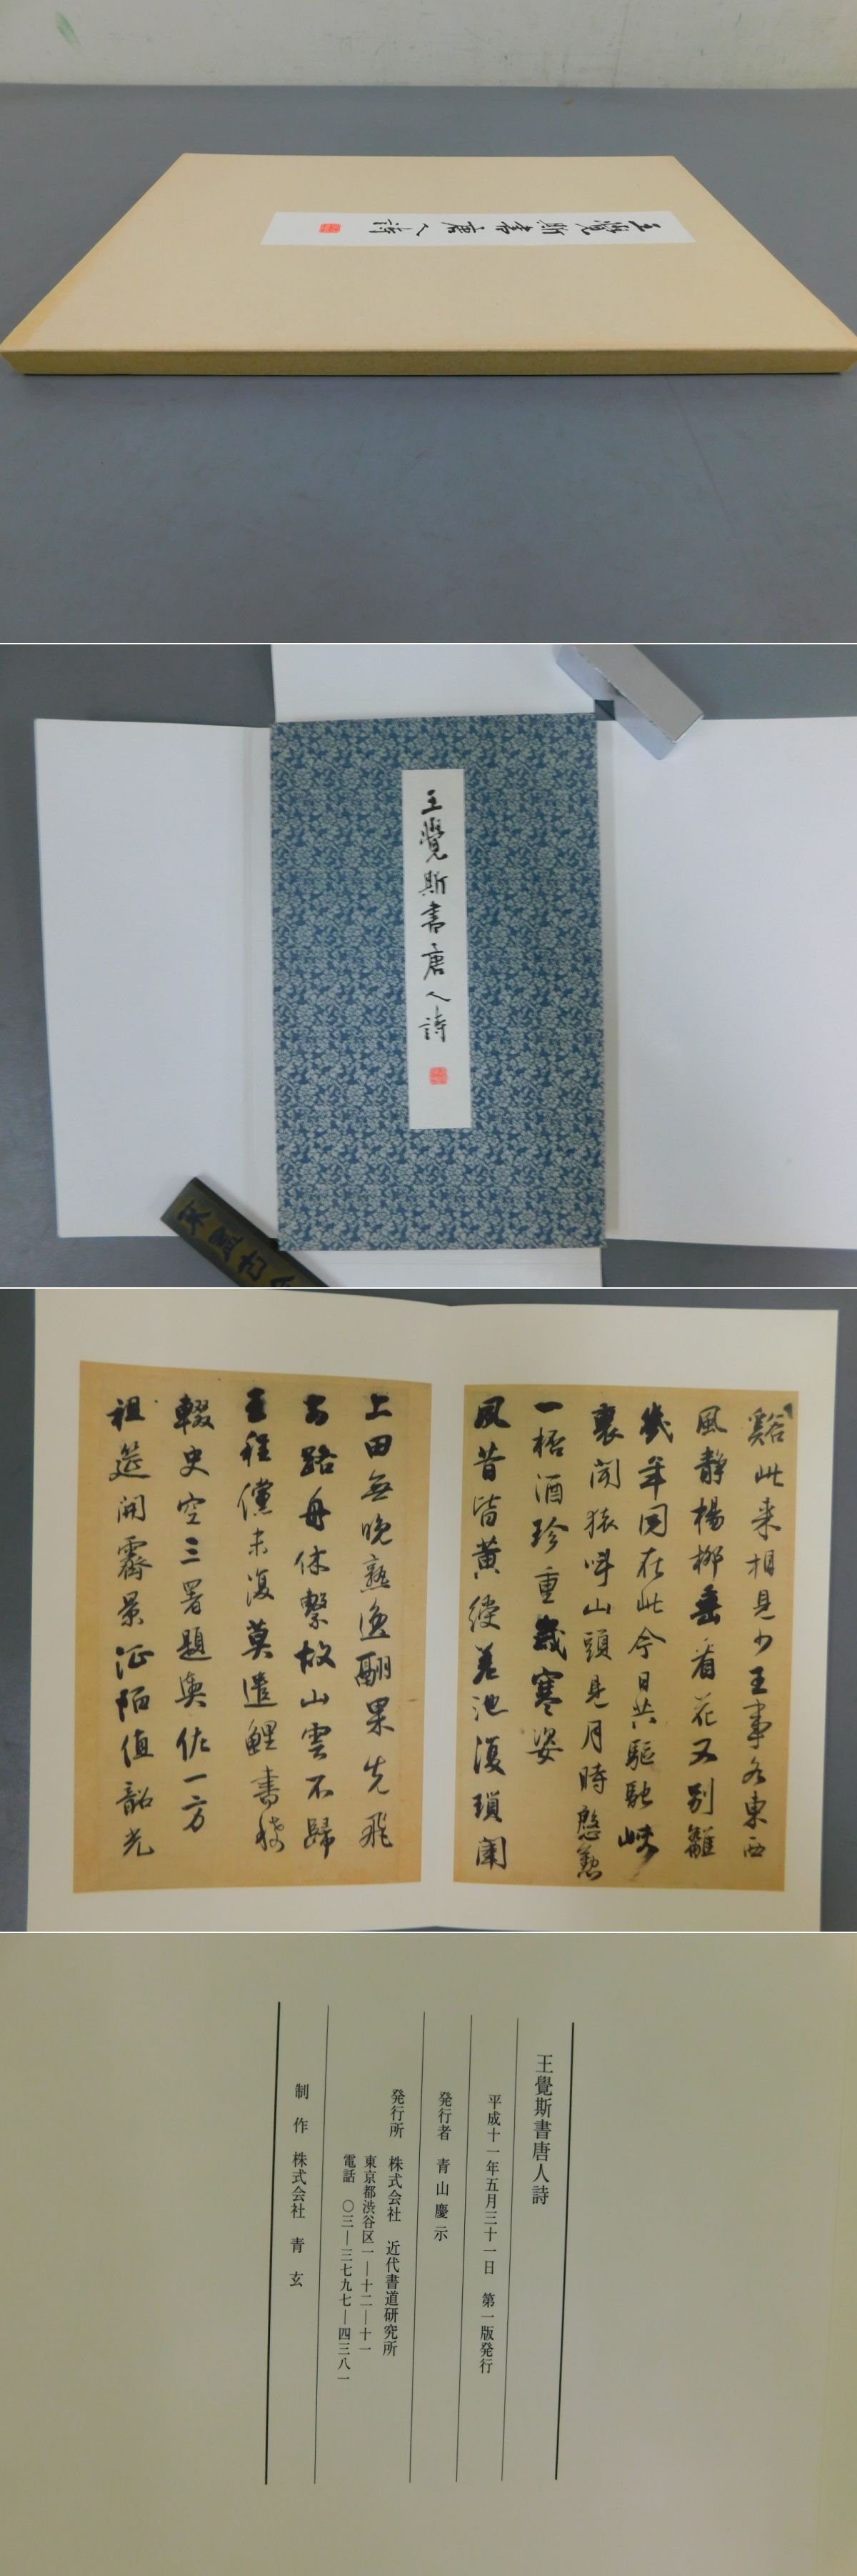 王覺斯書唐人詩
王覺斯書唐人詩
谿此来相見少王事各東西
風静楊柳垂看花又別離
幾年同在此今日共驅馳峽
裏聞猿叫山頭見月時慇懃
一桮酒珍重歲寒姿
風昔皆黄綬差池復瑣闈
上田無晩熟逸翮果先飛
路舟休繫故山雲不歸
王程儻未復莫遣鯉書稀
輟史空三署題輿佐一方
祖筵開霽景征陌値韶光
王覺斯書唐人詩
平成十一年五月三十一日　第一版発行
発行者　青山慶示
発行所　株式会社　近代書道研究所
東京都渋谷区一―十二―十一
電話　〇三―三七九七―四三八一
制作　株式会社　青玄